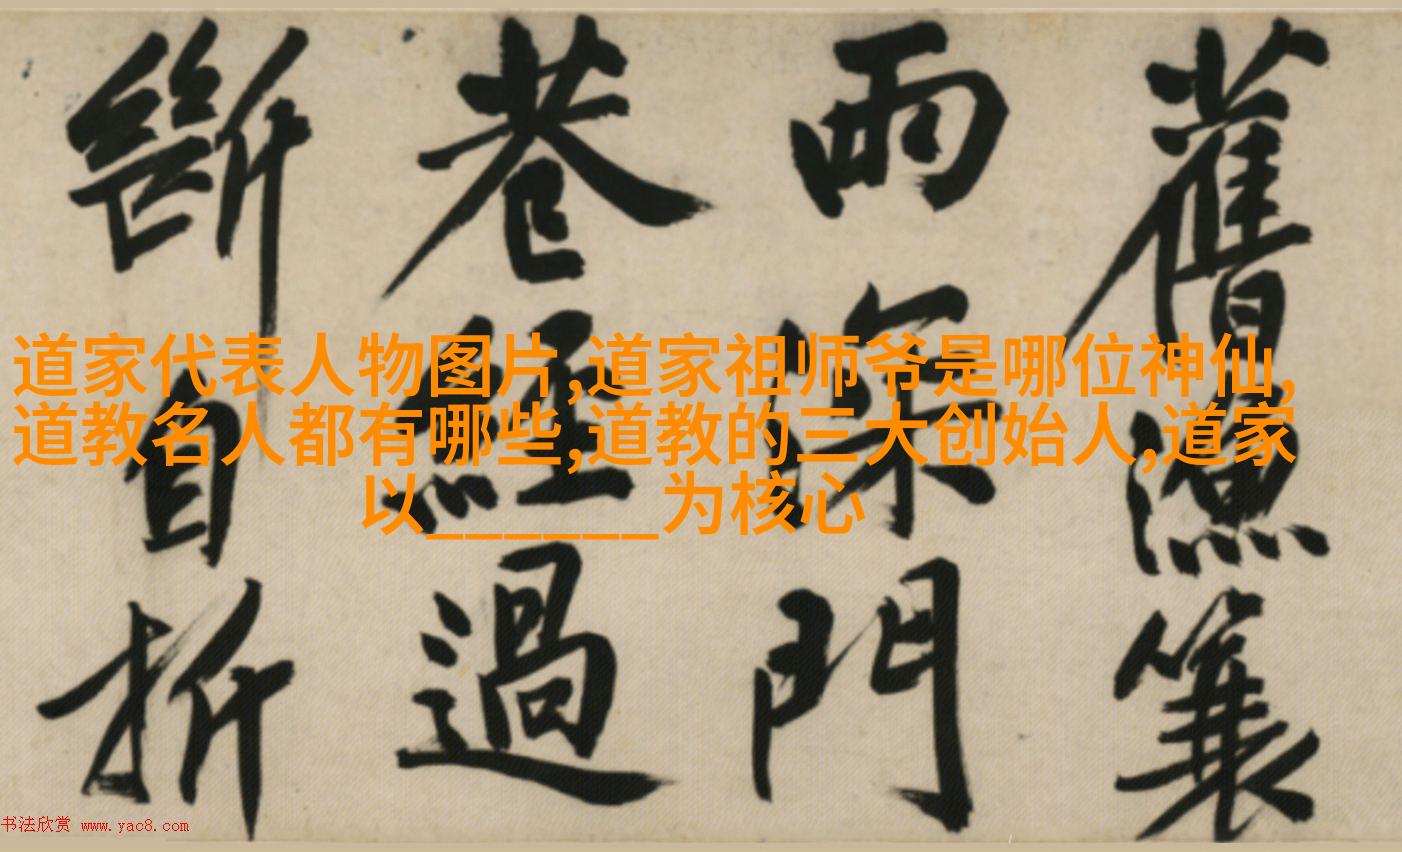 舊漁蓑
雨深門
巷經過
斷自折
道家代表人物图片,道家祖师爷是哪位神仙,
道教名人都有哪些,道教的三大创始人,道家
以______为核心
书法欣赏 www.yac8.com